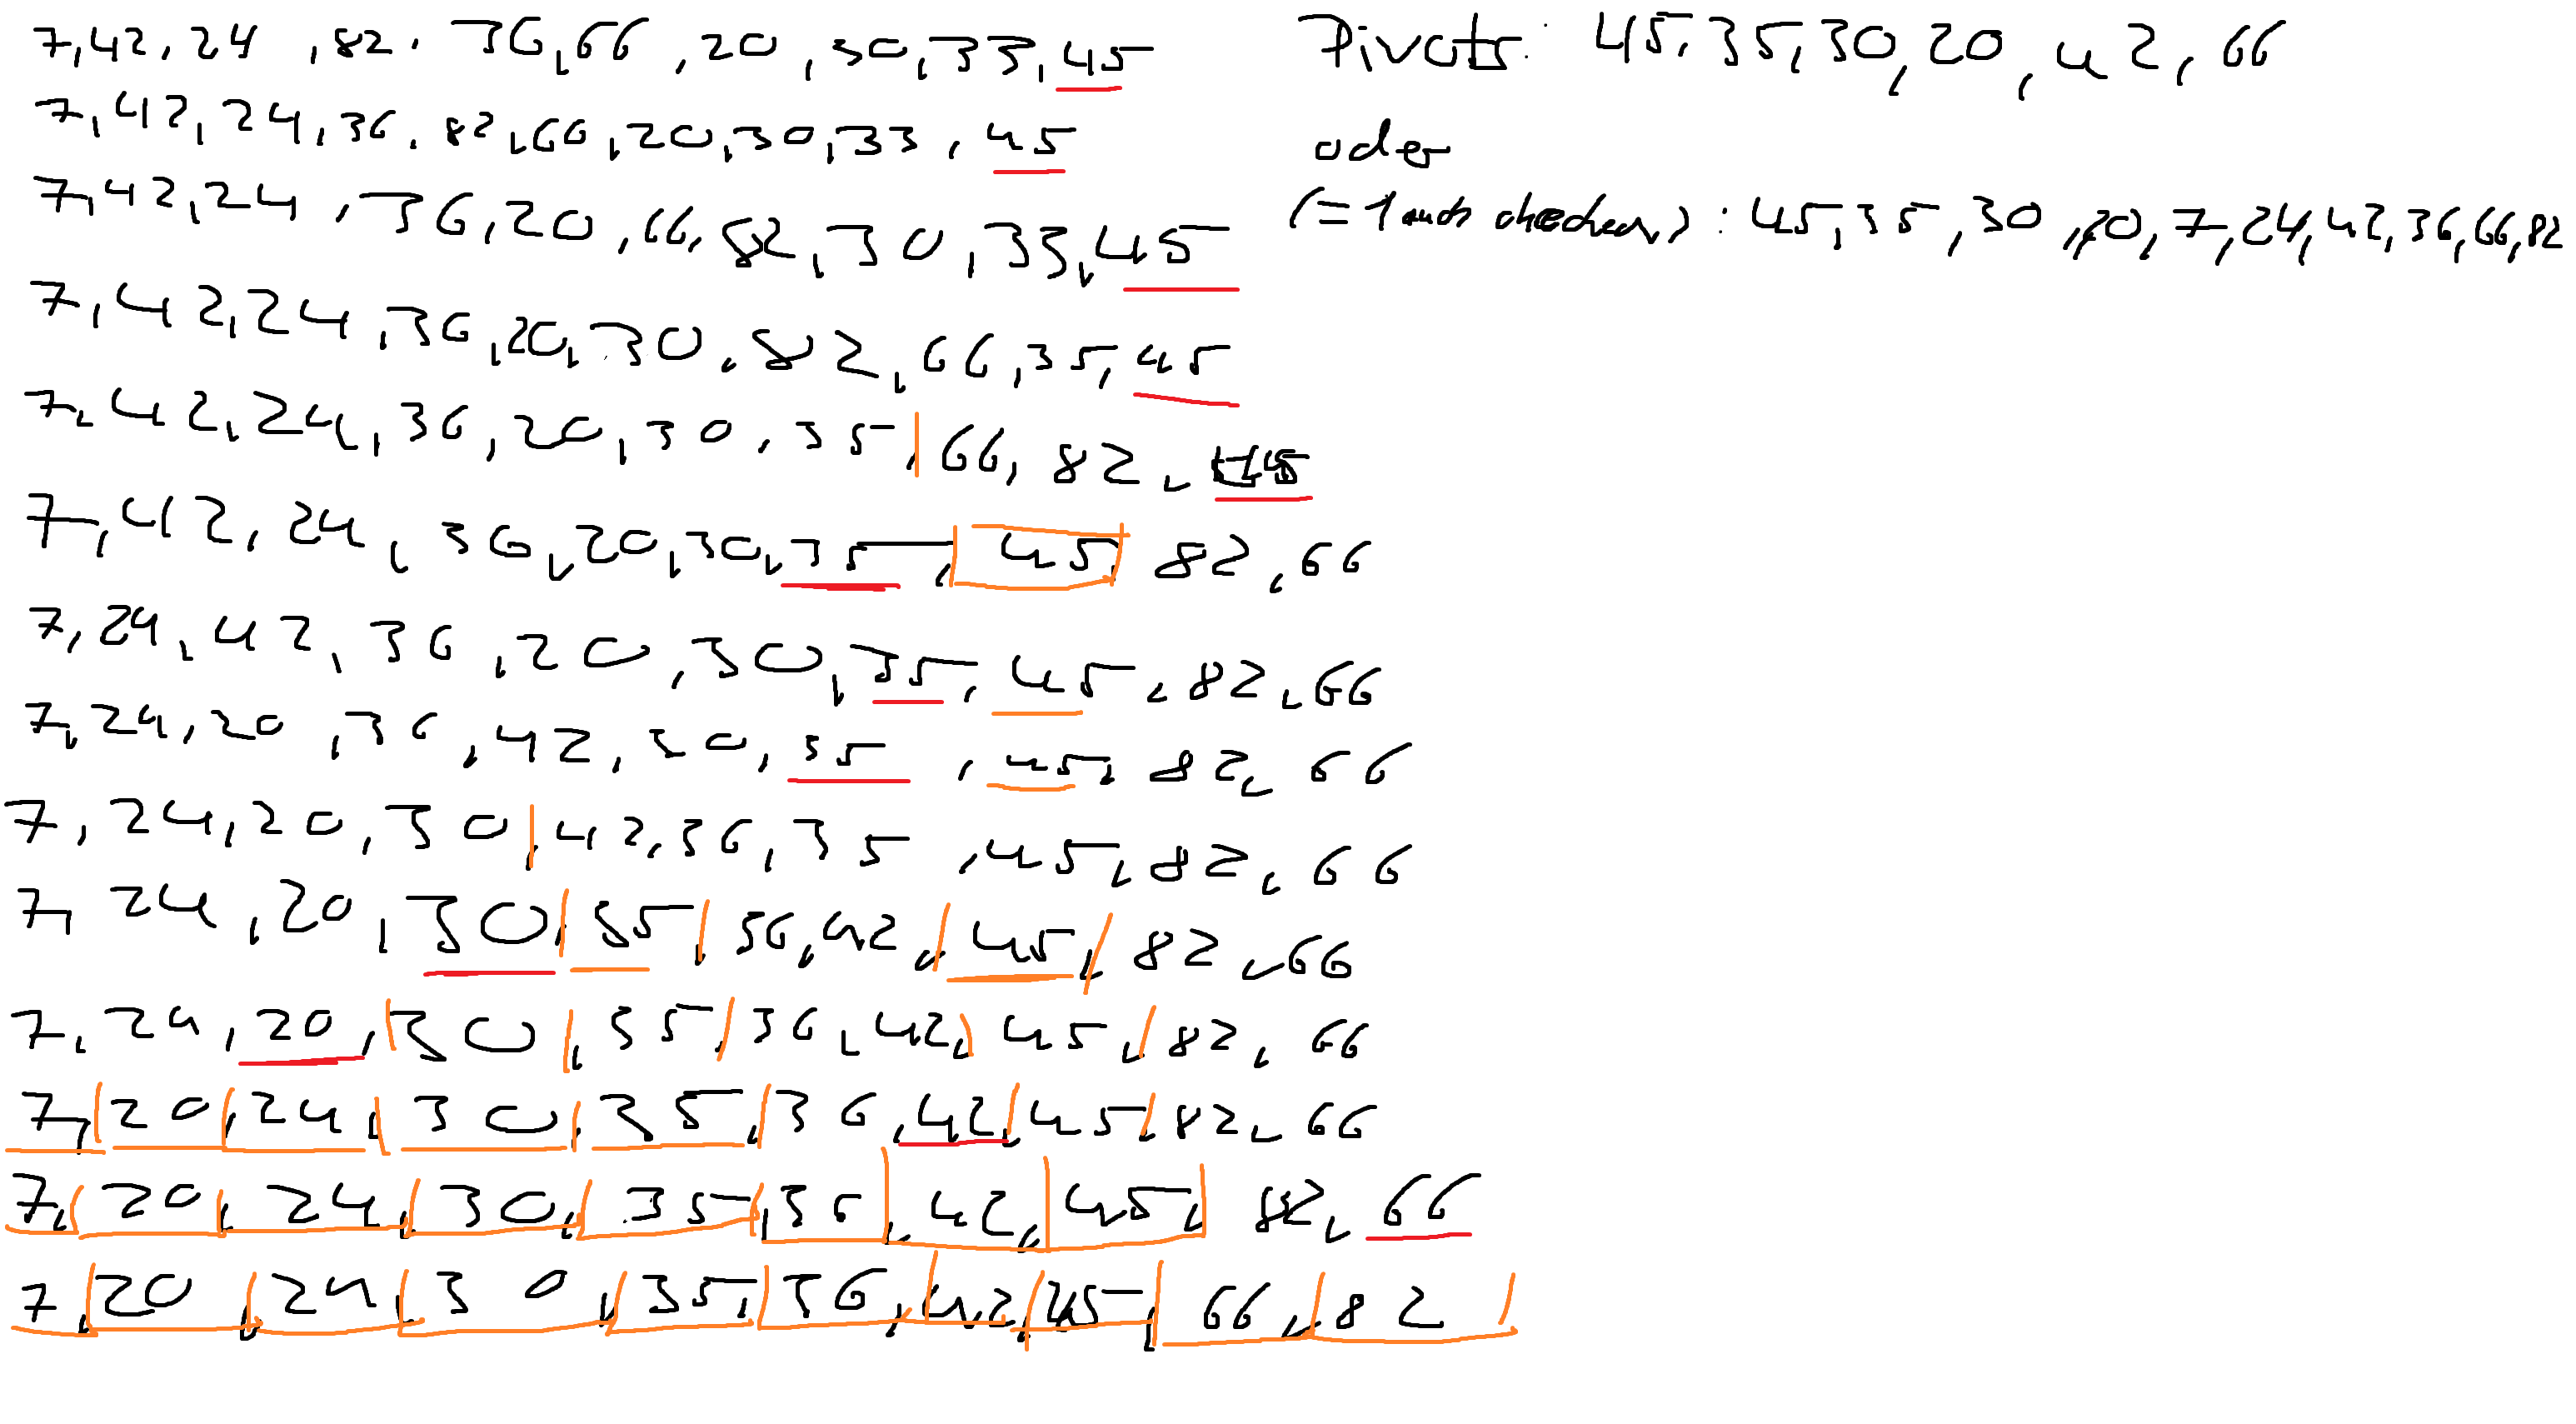 7,42,24,82,36,66,20,30,33,45
7,42,24,36,82,66,20,30,33,45
7,42,24,36,20,66,82,30,33,45
7,42,24,36,20,30,82,66,35,45
7,42,24,36,20,30,35,66,82,45
7,42,24,36,20,30,35,45,82,66
7,24,42,36,20,30,35,45,82,66
7,24,20,36,42,30,35,45,82,66
7,24,20,30,42,36,35,45,82,66
7,24,20,30,35,36,42,45,82,66
7,24,20,30,35,36,42,45,82,66
7,20,24,30,35,36,42,45,82,66
7,20,24,30,35,36,42,45,82,66
7,20,24,30,35,36,42,45,66,82
Pivots: 45,35,30,20,42,66
oder
(=1 auch checken): 45,35,30,20,7,24,42,36,66,82